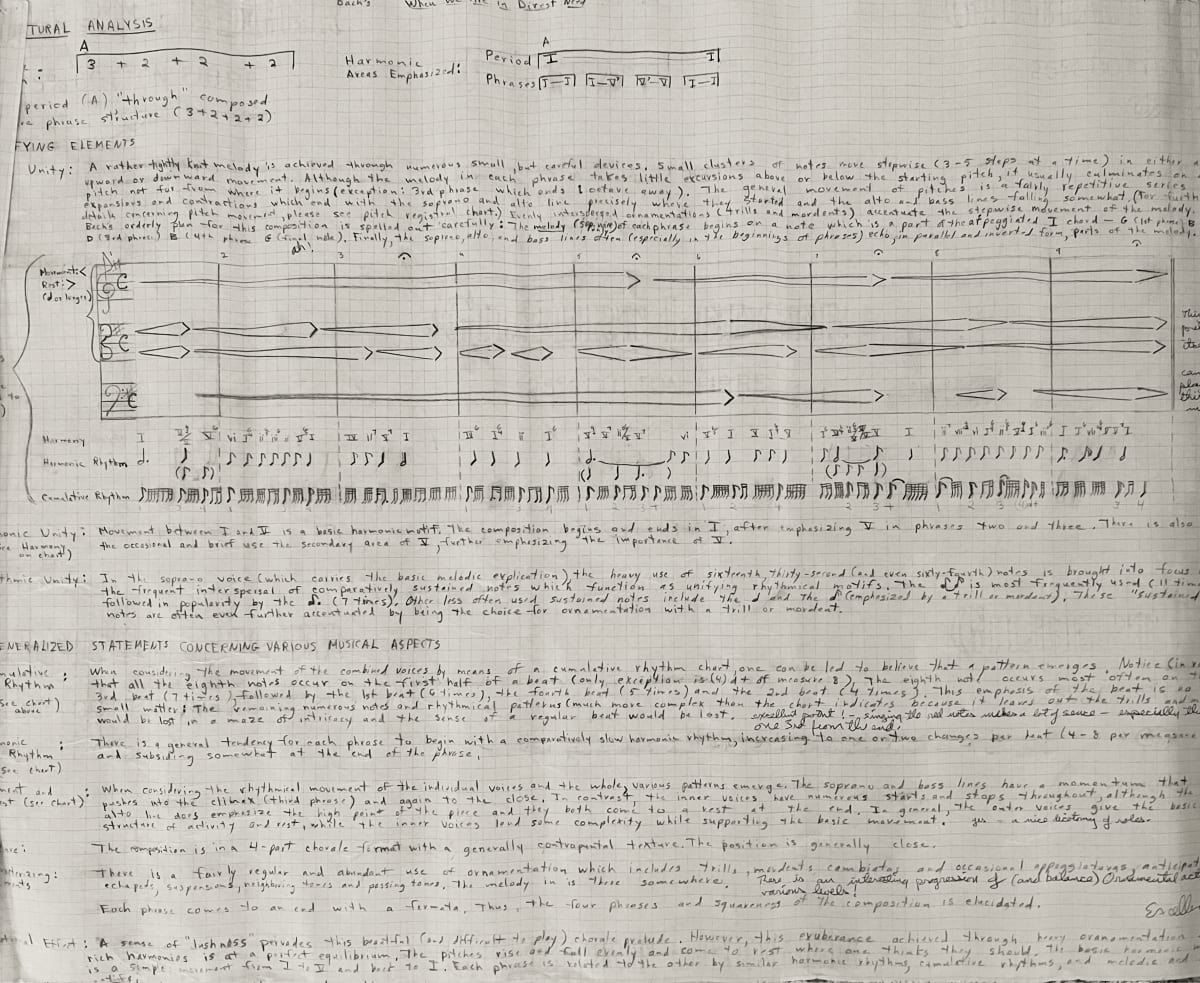 Bach's When We Are in Direst Need
TURAL ANALYSIS
A
3 + 2 + 2 + 2
Harmonic
Areas Emphasized:
A
Period I I
Phrases I-I I-V V-V I-I
period (A) "through" composed
phrase structure (3+2+2+2)
FYING ELEMENTS
Unity: A rather tightly knit melody is achieved through numerous small, but careful devices. Small clusters of notes move stepwise (3-5 steps at a time) in either a
upward or downward movement. Although the melody in each phrase takes little excursions above or below the starting pitch, it usually culminates on a
pitch not far from where it begins (exception: 3rd phrase which ends 1 octave away). The general movement of pitches is a fairly repetitive series
expansions and contractions which end with the soprano and alto line precisely where they started and the alto and bass lines falling somewhat. (For furth
details concerning pitch movement, please see pitch registral chart.) Evenly interspersed ornamentations (trills and mordents) accentuate the stepwise movement of the melody.
Bach's orderly plan for this composition is spelled out carefully: The melody (soprano) of each phrase begins on a note which is a part of the arpeggiated I chord - G (1st phrase) B
D (3rd phrase) B (4th phrase G (final note). Finally, the soprano, alto, and bass lines often (especially in the beginnings of phrases) echo, in parallel and inverted form, parts of the melody.
ah!
Movement: <
Rest: >
(d or longer)
2 3 4 5 6 7 8 9
Harmony
Harmonic Rhythm
Cumulative Rhythm
onic Unity: Movement between I and V is a basic harmonic motif. The composition begins and ends in I, after emphasizing V in phrases two and three. There is also
ee Harmony the occasional and brief use the secondary area of V, further emphasizing the importance of V.
on chart)
thmic Unity: In the soprano voice (which carries the basic melodic explication) the heavy use of sixteenth, thirty-second (and even sixty-fourth) notes is brought into focus
the frequent interspersal of comparatively sustained notes which function as unifying rhythmical motifs. The is most frequently used (11 time
followed in popularity by the (7 times). Other less often used sustained notes include the and the (emphasized by a trill or mordent). These "sustained
notes are often even further accentuated by being the choice for ornamentation with a trill or mordent.
ENERALIZED STATEMENTS CONCERNING VARIOUS MUSICAL ASPECTS
mulative : When considering the movement of the combined voices by means of a cumulative rhythm chart, one can be led to believe that a pattern emerges. Notice (in re
Rhythm that all the eighth notes occur on the first half of a beat (only exception is (4) dt of measure 8). The eighth not occurs most often on t
see chart) 3rd beat (7 times), followed by the 1st beat (6 times), the fourth beat (5 times) and the 2nd beat (4 times). This emphasis of the beat is no
above small matter: The remaining numerous notes and rhythmical patterns (much more complex than the chart indicates because it leaves out the trills and
would be lost in a maze of intricacy and the sense of a regular beat would be lost. excellent point! - singing the red notes makes a lot of sense - especially the
one 3rd from the end.
monic : There is a general tendency for each phrase to begin with a comparatively slow harmonic rhythm, increasing to one or two changes per beat (4-8 per measure
Rhythm and subsiding somewhat at the end of the phrase.
See chart)
ment and : When considering the rhythmical movement of the individual voices and the whole, various patterns emerge. The soprano and bass lines have a momentum that
st (see chart) pushes into the climax (third phrase) and again to the close. In contrast, the inner voices have numerous starts and stops throughout, although the
alto line does emphasize the high point of the piece and they both come to a rest at the end. In general, the outer voices give the basic
structure of activity and rest, while the inner voices lend some complexity while supporting the basic movement. yes - a nice listing of roles.
ure: The composition is in a 4-part chorale format with a generally contrapuntal texture. The position is generally close.
There is a fairly regular and abundant use of ornamentation which includes trills, mordents, cambiatas, and occasional appoggiaturas, anticipat
ments echapees, suspensions, neighboring tones and passing tones. The melody in is there somewhere. There is an interesting progression of (and balance) Ornamental act
various levels!
Each phrase comes to an end with a fermata. Thus, the four phrases and squareness of the composition is elucidated.
Excellen
Effect: A sense of "lushness" pervades this beautiful (and difficult to play) chorale prelude. However, this exuberance achieved through heavy oranamentation
rich harmonies is at a perfect equilibrium. The pitches rise and fall evenly and come to rest where one thinks they should. The basic harmonic
is a simple movement from I to V and back to I. Each phrase is related to the other by similar harmonic rhythms, cumulative rhythms, and melodic and